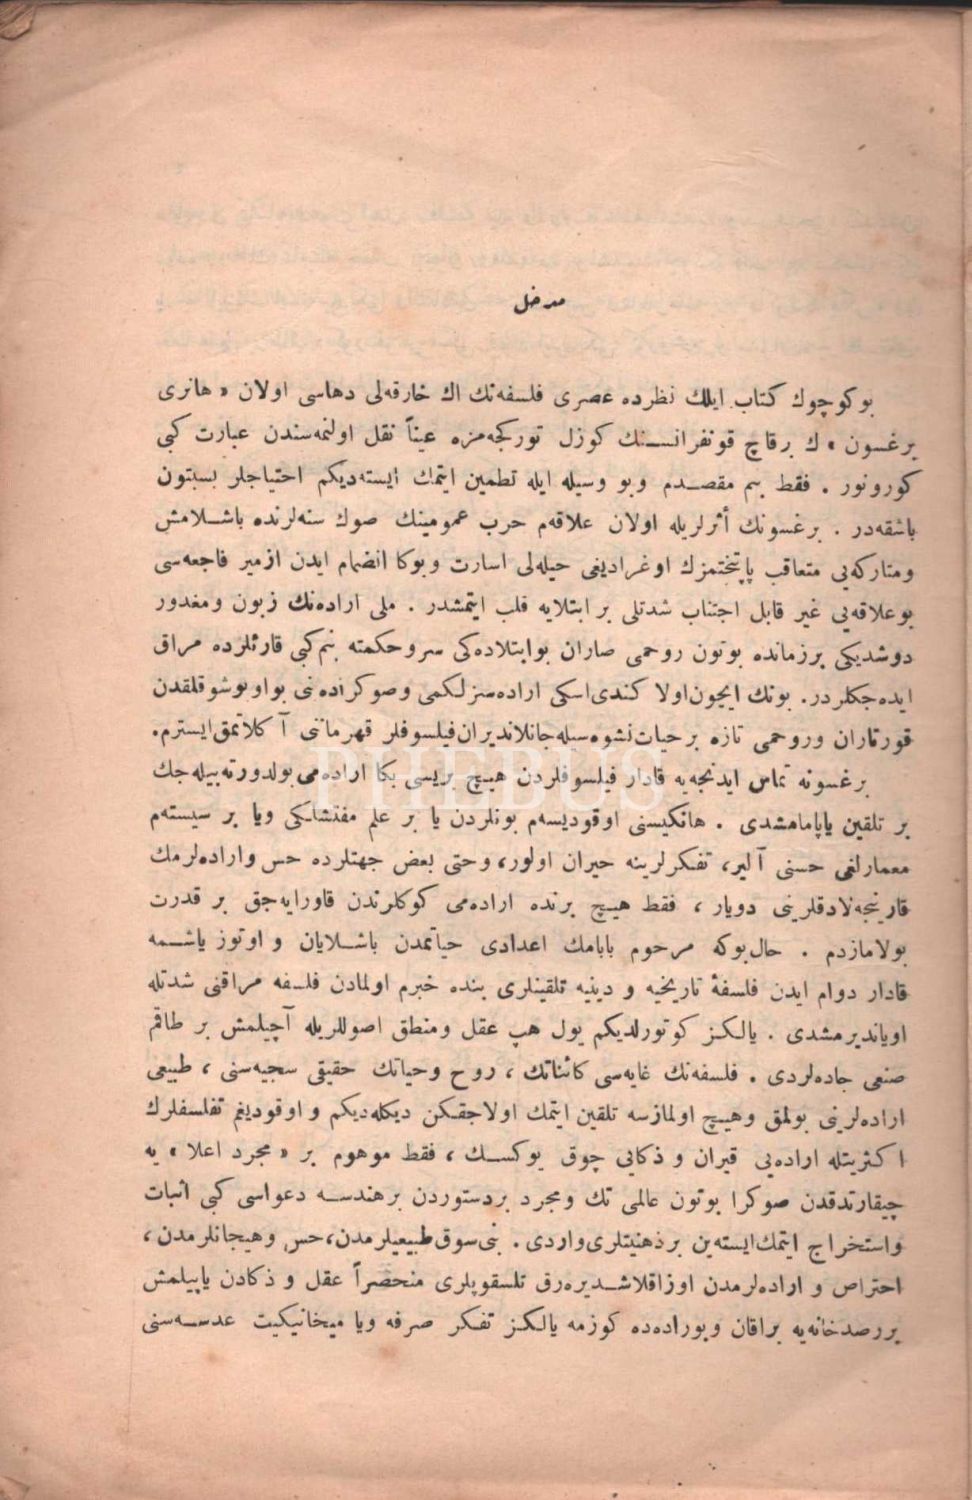 مدخل
بوكوچوك كتاب ايلك نظرده عصرى فلسفه‌نك اك خارقه‌لى دهاسى اولان « هانرى
برغسون » ك برقاچ قونفرانسـنك كوزل توركجه‌مزه عيناً نقل اولنمه‌سندن عبارت كبى
كورونور . فقط بنم مقصـدم وبو وسيله ايله تطمين ايتمك ايسته‌ديكم احتياجلر بسبتون
باشقه‌در . برغسونك أثرلريله اولان علاقه‌م حرب عمومينك صوك سنه‌لرنده باشـلامش
ومتاركه‌يى متعاقب پايتختمزك اوغراديغى حيله‌لى اسارت وبوكا انضمام ايدن ازمير فاجعه‌سى
بوعلاقه‌يى غير قابل اجتناب شدتلى بر ابتلايه قلب ايتمشدر . ملى اراده‌نك زبون ومغدور
دوشديكى برزمانده بوتون روحمى صاران بوابتلاده‌كى سروحكمته بنم كبى قارئلرده مراق
ايده‌جكلردر. بونك ايچون اولا كندى اسكى اراده‌سزلكمى وصوكراده‌نى بواويوشوقلقدن
قورتاران وروحمى تازه بر حيات نشوه‌سيله جانلانديران فيلسوفلر قهرمانى آ كلاتمق ايسترم.
برغسونه تماس ايدنجه‌يه قادار فيلسوفلردن هيـچ بريسى بكا اراده‌مى بولدورته‌بيله‌جك
بر تلقين ياپامامشدى . هانكيسنى اوقوديسه‌م بونلردن يا بر علم مفتشلكى ويا بر سيسته‌م
معمارلغى حسنى آلير، تفكرلرينه حيران اولور، وحتى بعض جهتلرده حس واراده‌لرمك
قارينجه‌لادقلرينى دويار ، فقط هيـچ برنده اراده‌مى كوكلرندن قاورايه‌جق بر قدرت
بولامازدم . حال‌بوكه مرحوم بابامك اعدادى حياتمدن باشـلايان و اوتوز ياشـمه
قادار دوام ايدن فلسفهٔ تاريخيه و دينيه تلقينلرى بنده خبرم اولمادن فلسفه مراقنى شدتله
اويانديرمشدى . يالكـز كوتورلديكم يول هپ عقل ومنطق اصوللريله آچيلمش بر طاقم
صنعى جاده‌لردى . فلسفه‌نك غايه‌سى كائناتك ، روح وحياتك حقيقى سجيه‌سنى ، طبيعى
اراده‌لرينى بولمق وهيـچ اولمازسه تلقين ايتمك اولاجقكن ديكله‌ديكم و اوقوديغم تفلسفلرك
اكثريتله اراده‌يى قيران و ذكايى چوق يوكسـك ، فقط موهوم بر « مجرد اعلا » يه
چيقارتدقدن صوكرا بوتون عالمى تك ومجرد بردستوردن برهندسـه دعواسى كبى اثبات
واستخراج ايتمك ايسته‌ين برذهنيتلرى واردى . بنى سوق طبيعيلرمدن، حس وهيجانلرمدن ،
احتراص و اراده‌لرمدن اوزاقلاشـديره‌رق تلسقوپلرى منحصراً عقل و ذكادن ياپيلمش
بررصدخانه‌يه براقان وبوراده‌ده كوزمه يالكـز تفكر صرفه ويا ميخانيكيت عدسـه‌سنى
PHEBUS